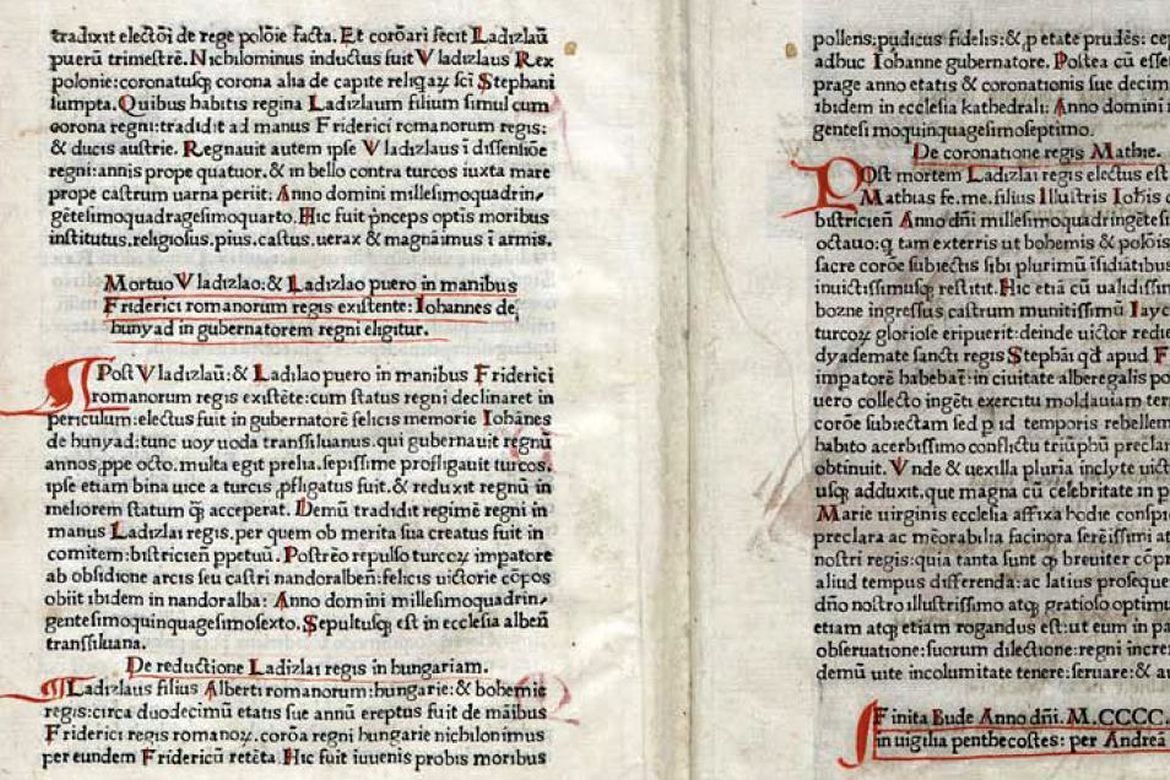 tradixit electõi de rege polõie facta. Et corõari fecit Ladizlaū
puerū trimestrē. Nichilominus inductus fuit Vladizlaus Rex
polonie: coronatusqꝫ corona alia de capite reliqaꝝ sci Stephani
sumpta. Quibus habitis regina Ladizlaum filium simul cum
corona regni: tradidit ad manus Friderici romanorum regis:
& ducis austrie. Regnauit autem ipse Vladizlaus ī dissensiõe
regni: annis prope quatuor. & in bello contra turcos iuxta mare
prope castrum uarna periit: Anno domini millesimoquadrin-
gētesimoquadragesimoquarto. Hic fuit ṗnceps optis moribus
institutus. religiosus. pius. castus. uerax & magnaimus ī armis.
Mortuo Vladizlao: & Ladizlao puero in manibus
Friderici romanorum regis existente: Iohannes de
hunyad in gubernatorem regni eligitur.
Post Vladizlaū: & Ladislao puero in manibus Friderici
romanorum regis existēte: cum status regni declinaret in
periculum: electus fuit in gubernatorē felicis memorie Iohānes
de hunyad: tunc uoyuoda transsiluanus. qui gubernauit regnū
annos ꝓpe octo. multa egit prelia. sepissime profligauit turcos.
ipse etiam bina uice a turcis ꝓfligatus fuit. & reduxit regnū in
meliorem statum q̄ꝫ acceperat. Demū tradidit regimē regni in
manus Ladizlai regis. per quem ob merita sua creatus fuit in
comitem: bistricieñ ppetuū. Postrēo repulso turcoꝝ impatore
ab obsidione arcis seu castri nandoralbeñ: felicis uictorie cōpos
obiit ibidem in nandoralba: Anno domini millesimoquadrin-
gentesimoquinquagesimosexto. Sepultusqꝫ est in ecclesia albeñ
transsiluana.
De reductione Ladizlai regis in hungariam.
Ladizlaus filius Alberti romanorum: hungarie: & bohemie
regis: circa duodecimū etatis sue annū ereptus fuit de māibus
Friderici regis romanoꝝ. corōa regni hungarie nichilonimus
per eundem Fridericū retēta. Hic fuit iuuenis probis moribus
pollens: pudicus fidelis: & ꝓ etate prudēs:
adhuc Iohanne gubernatore. Postea cū
prage anno etatis & coronationis sue
ibidem in ecclesia kathedrali: Anno domini
gentesimoquinquagesimoseptimo.
De coronatione regis Mathie.
POst mortem Ladizlai regis electus est
Mathias fe. me. filius Illustris Ioħis
bistricieñ Anno dñi
octauo: q tam exterris ut bohemis & polõis
sacre corõe subiectis sibi plurimū īsidiatibus
inuictissimusqꝫ restitit. Hic etiā cū
bozne ingressus castrum munitissimū
turcoꝝ gloriose eripuerit: deinde uictor
dyademate sancti regis Stephāi qđ apud
impatorē habebat: in ciuitate alberegalis
uero collecto ingēti exercitu moldauiam
corõe subiectam sed ꝓ id temporis
habito acerbissimo conflictu triūphū
obtinuit. Vnde & uexilla pluria inclyte
usqꝫ adduxit. que magna cū celebritate in
Marie uirginis ecclesia affixa hodie
preclara ac mēorabilia facinora
nostri regis: quia tanta sunt qꝫ breuiter
aliud tempus differenda: ac latius
dño nostro illustrissimo atqꝫ gratioso
etiam atqꝫ etiam rogandus est: ut eum in
obseruatione: suorum dilectione: regni
demū uite incolumitate tenere: seruare: &
Finita Bude Anno dñi. M.CCCC.
in uigilia penthecostes: per Andreā